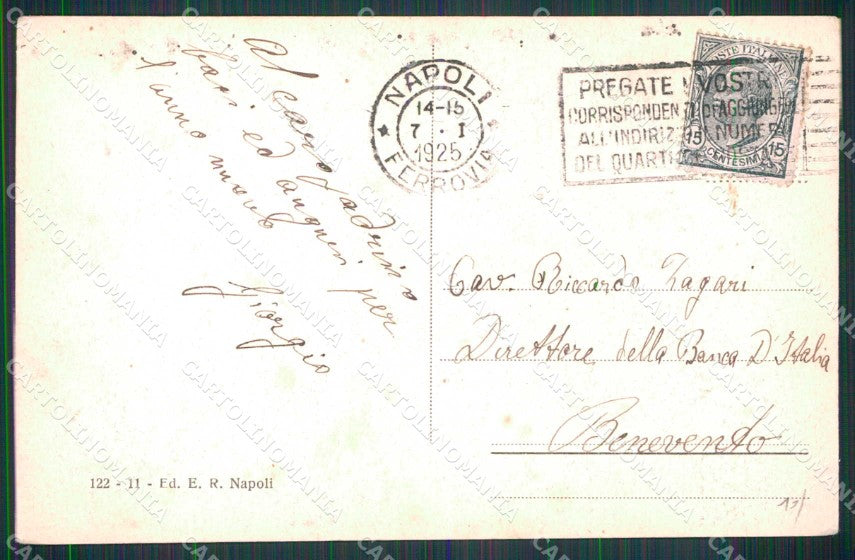 Al caro Padrino
baci ed auguri per
l'anno nuovo
Giorgio
NAPOLI
14-15
7 . I
1925
FERROVIA
PREGATE I VOSTRI
CORRISPONDENTI D'AGGIUNGERE
ALL'INDIRIZZO IL NUMERO
DEL QUARTIERE
POSTE ITALIANE
15 CENTESIMI 15
Cav. Riccardo Zagari
Direttore della Banca D'Italia
Benevento
122 - 11 - Ed. E. R. Napoli
CARTOLINOMANIA